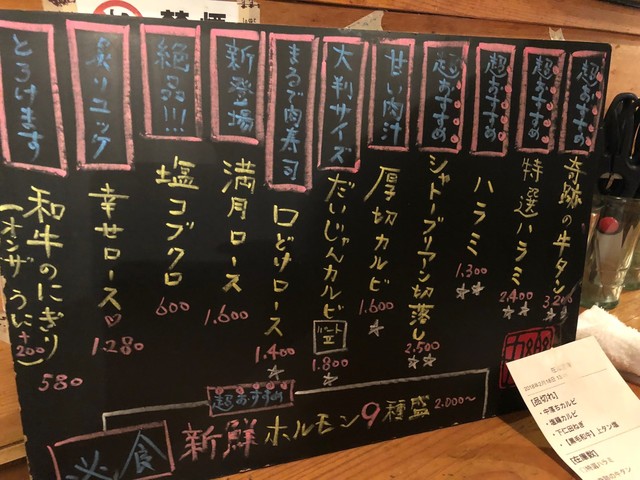 超おすすめ
奇跡の牛タン
超おすすめ
特選ハラミ
2,400
超おすすめ
ハラミ
1,300
超おすすめ
シャトーブリアン切落し
2,500
甘い肉汁
厚切カルビ
1,600
大判サイズ
だいじゃんカルビ
1,800
まるで肉寿司
口どけロース
1,400
新登場
満月ロース
1,600
絶品!!!
塩コブクロ
600
炙リユッケ
幸せロース
1280
とろけます
和牛のにぎり
(オンザうに+200)
580
超おすすめ
必食
新鮮ホルモン9種盛 2,000〜
【品切れ】
・中落ちカルビ
・塩麹カルビ
・下仁田ねぎ
・【黒毛和牛】上タン塩
【在庫数】